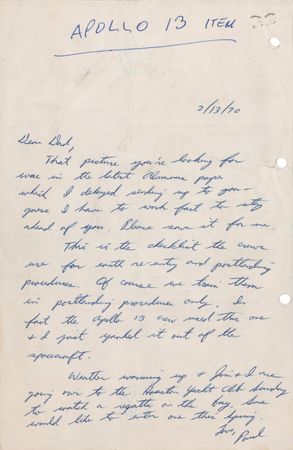 APOLLO 13 ITEM
2/13/70
Dear Dad,
That picture you're looking for
was in the latest Alumnus paper
which I delayed sending up to you -
guess I have to work fast to stay
ahead of you. Please save it for me.
This is the checklist the crews
use for earth re-entry and postlanding
procedures. Of course we train them
in postlanding procedures only. In
fact the Apollo 13 crew used this one
& I just yanked it out of the
spacecraft.
Weather warming up & Jim & I are
going over to the Houston Yacht Club Sunday
to watch a regatta on the bay. Sure
would like to enter one this Spring.
Love,
Paul